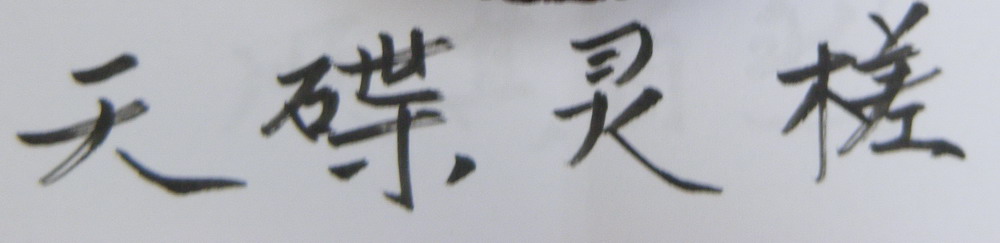 天碟灵槎